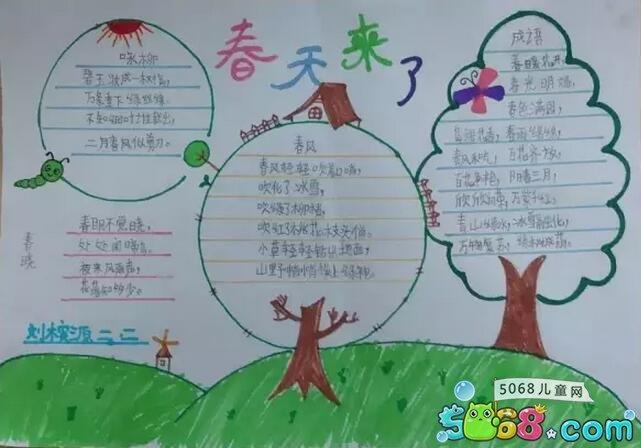 春天来了
咏柳
碧玉妆成一树高,
万条垂下绿丝绦。
不知细叶谁裁出,
二月春风似剪刀。
春晓
春眠不觉晓,
处处闻啼鸟。
夜来风雨声,
花落知多少。
刘
源二二
春风
春风轻轻吹着
吹化了冰雪,
吹绿了柳梢,
吹红了桃花枝头俏。
小草轻轻钻出地面,
山里悄悄换上绿
成语
春暖花开,
春光明媚,
春色满园,
鸟语花香,春雨绵绵,
百花齐放,
百花争艳,阳春三月,
欣欣向荣,万紫千红,
青山绿水,冰雪融化,
万物复苏,
5068儿童网
5068.com